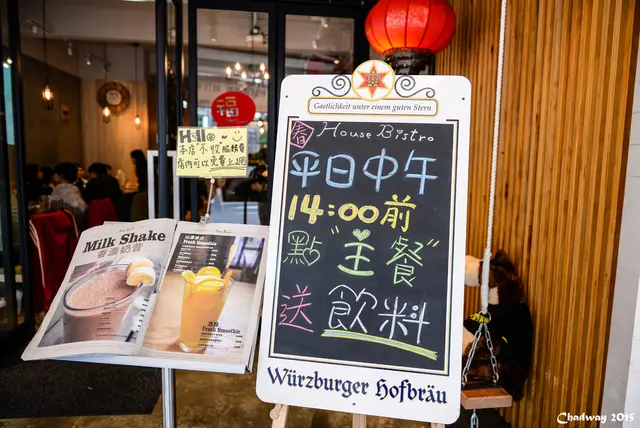 福
Hello
本店不收服務費
店內可以免費上網
Milk Shake
香濃奶昔
Fresh Smoothie
Fresh Smoothie
Gastlichkeit unter einem guten Stern
春 House Bistro
平日中午
14:00前
點"主餐"
送飲料
Würzburger Hofbräu
Chadway 2015